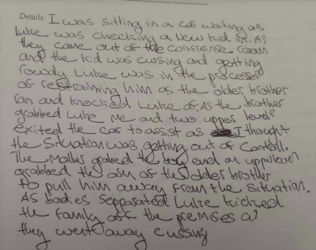 Details: I was sitting in a car waiting as
Luke was checking a new kid in. As
they came out of the confrense room
and the kid was cussing and getting
rowdy Luke was in the processes
of restraining him as the older brother
ran and knocked Luke of. As the brother
grabbed Luke me and two upper levels
exited the car to assist as I thought
the situation was getting out of control.
The Mother grabed the boy and an upperlevel
grabbed the arm of the older brother
to pull him away from the situation.
As bodies separated Luke kicked
the family off the premises as
they went away cussing